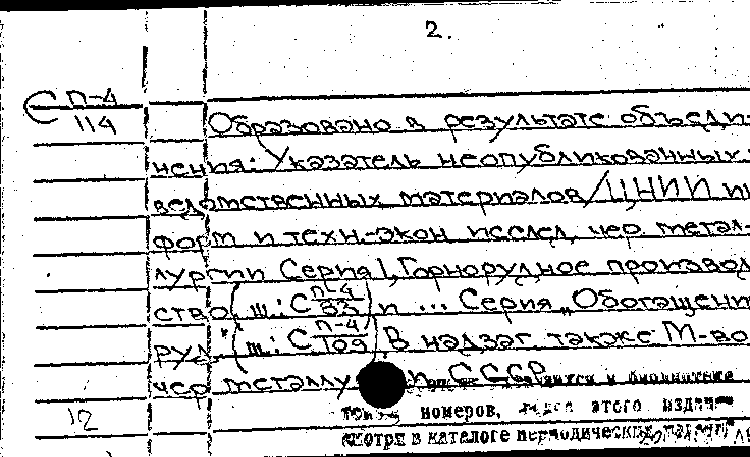 2.
С П-4
114
Образовано в результате объеди-
нения: Указатель неопубликованных
ведомственных материалов/ЦНИИ ин
форм и техн.-экон исслед. чер метал-
лургии Серия 1, Горнорудное производ
ство (ш: С П-4/83) и ... Серия „Обогащени
руд" (ш: С П-4/109) В надзаг. также М-во
чер металлу и СССР
номеров, этого издания
12
смотри в каталоге периодических